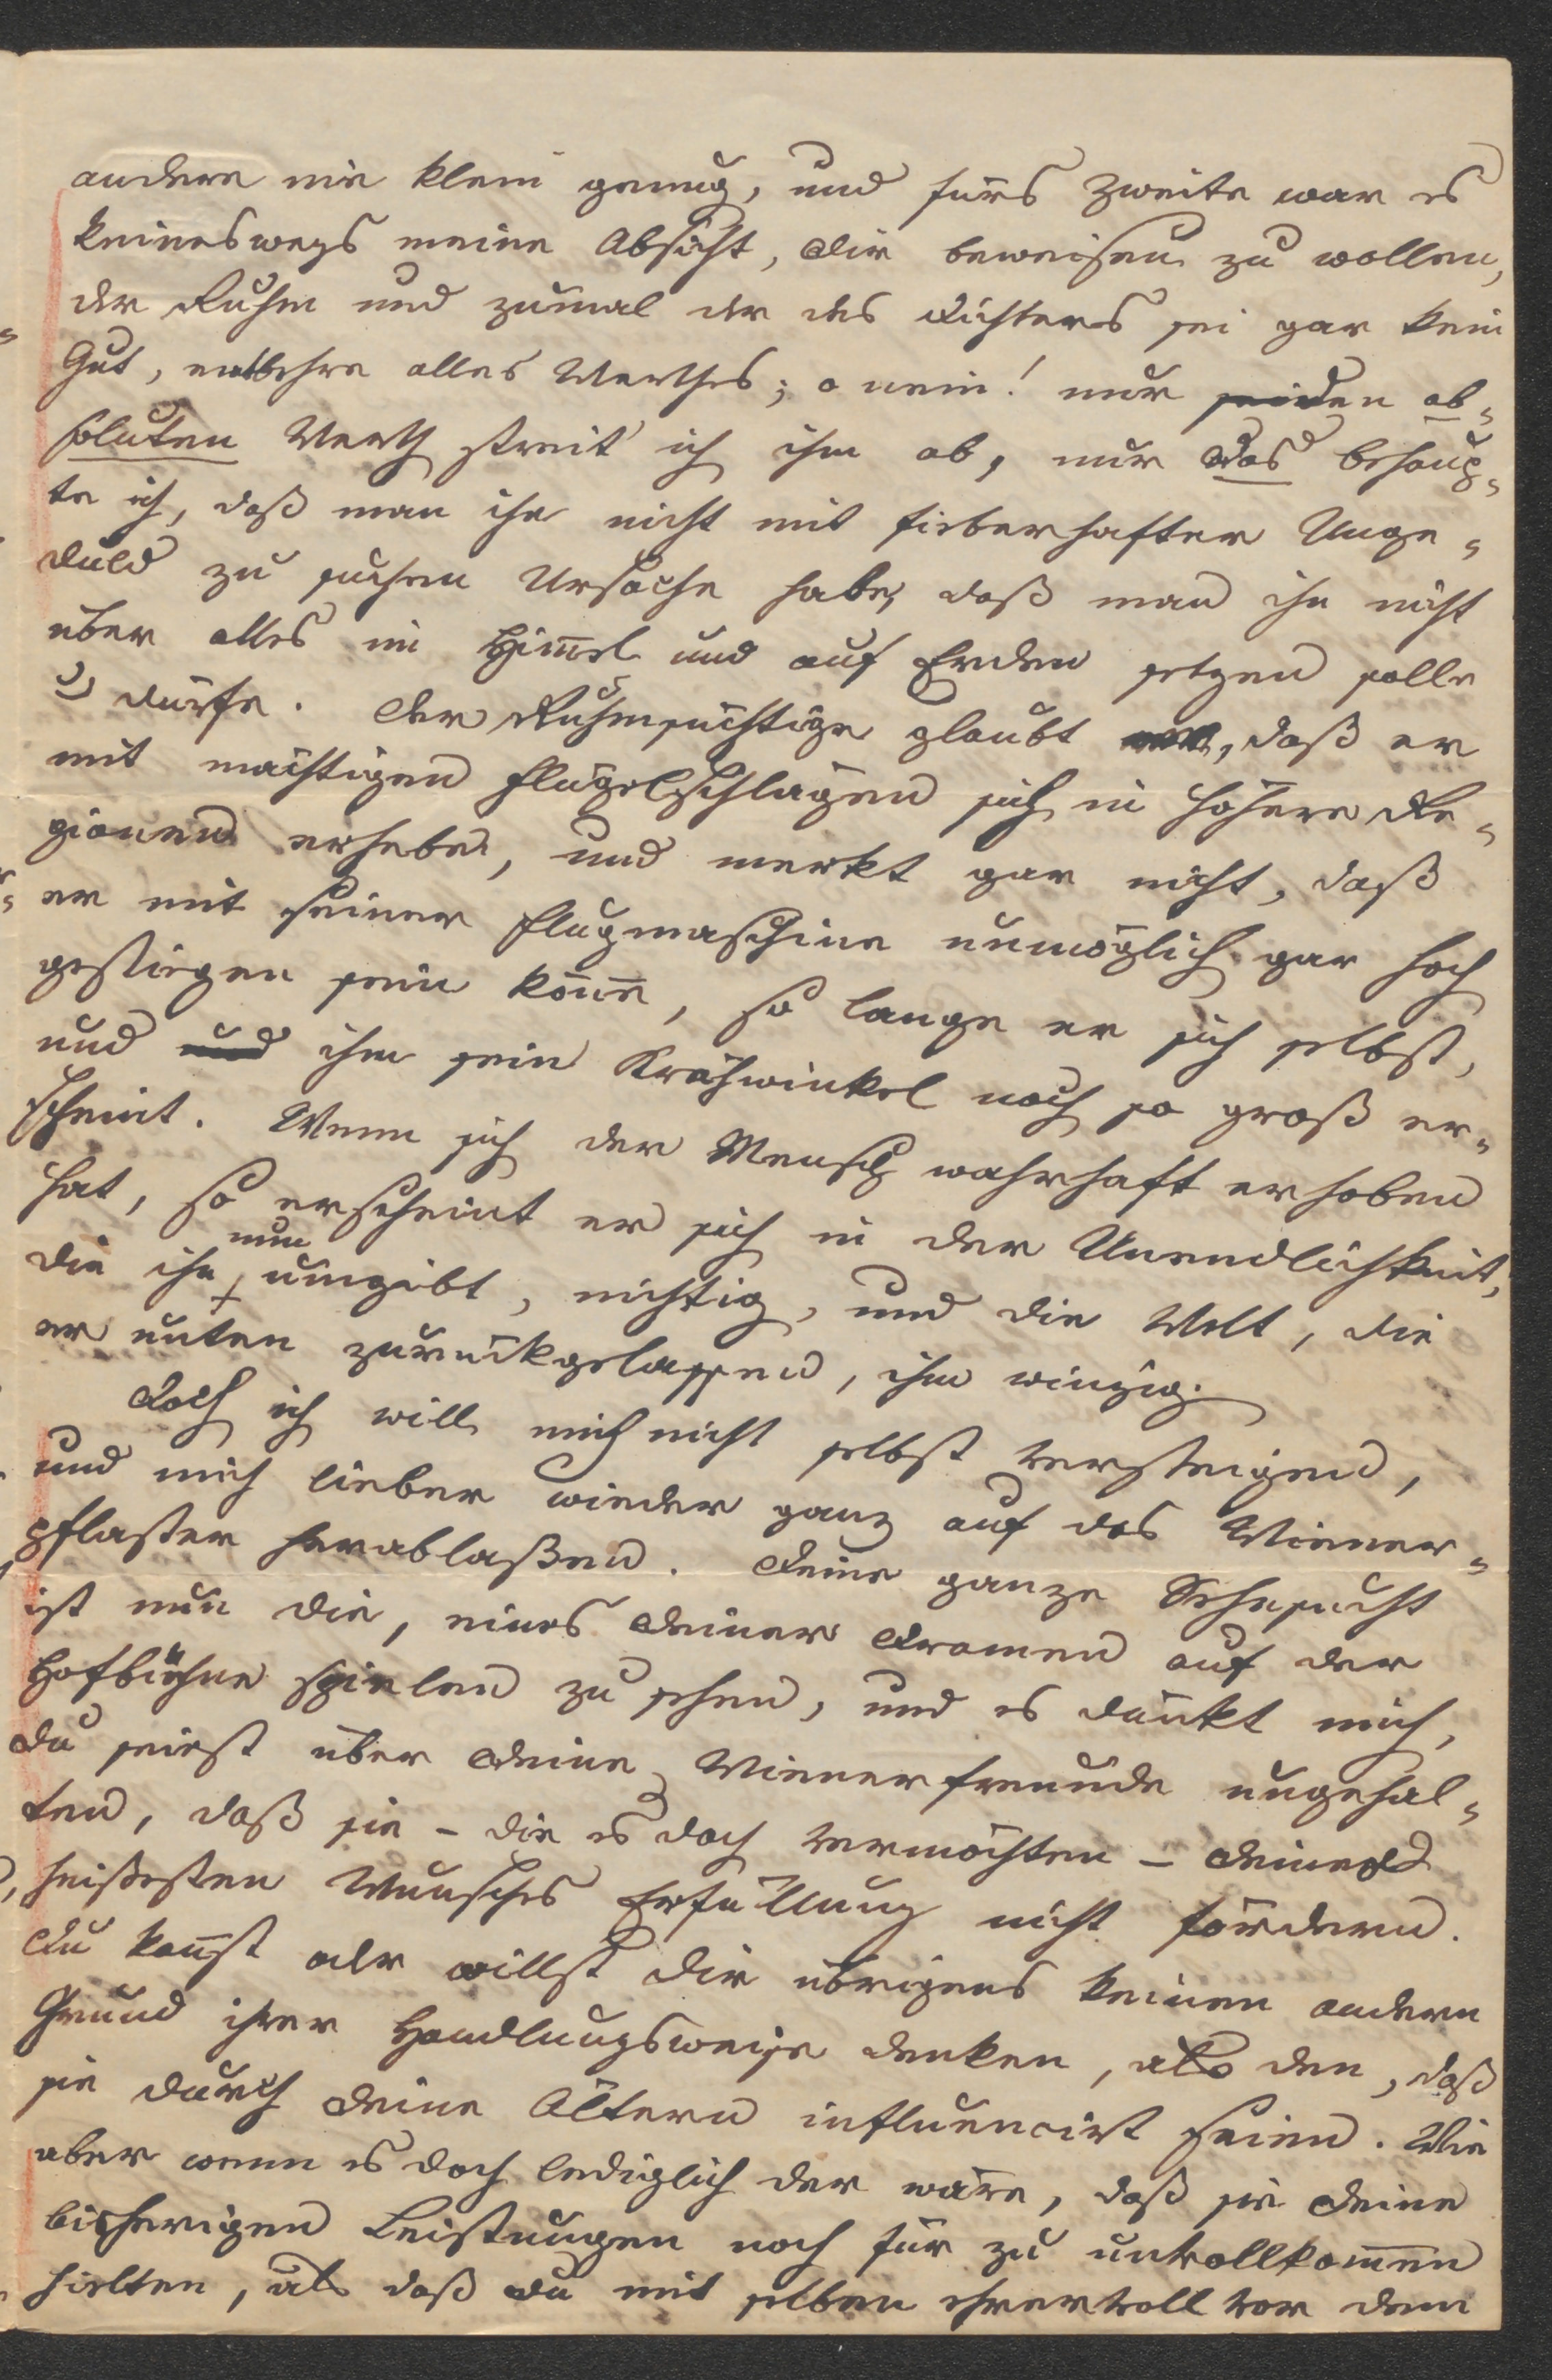 andere nie klein genug, und fürs Zweite war es
keineswegs meine Absicht, Dir beweisen zu wollen,
der Ruhm und zumal der des Dichters sei gar kein
Gut, entbehre alles Werthes; o nein! nur den ab-
soluten Werth streit' ich ihm ab, nur das behaup-
te ich, daß man ihn nicht mit fieberhafter Unge-
duld zu suchen Ursache habe, daß man ihn nicht
über alles im Him̅el und auf Erden setzen solle
u dürfe. Der Ruhmsüchtige glaubt, daß er
mit mächtigen Flügelschlägen sich in höhere Re-
gionen erhebe, und merkt gar nicht, daß
er mit seiner Flugmaschine unmöglich gar hoch
gestiegen sein kön̅e, so lange er sich selbst,
und und ihm sein Krähwinkel noch so groß er-
scheint. Wenn sich der Mensch wahrhaft erhoben
hat, so erscheint er sich in der Unendlichkeit,
die ihn nun umgibt, nichtig, und die Welt, die
er unten zurückgelassen, ihm winzig.
Doch ich will mich nicht selbst versteigen,
und mich lieber wieder ganz auf das Wiener-
pflaster herablaßen. Deine ganze Sehnsucht
ist nun die, eines Deiner Dramen auf der
Hofbühne spielen zu sehen, und es dünkt mich,
Du seiest über Deine Wienerfreunde ungehal-
ten, daß sie – die es doch vermöchten – Deines
heißesten Wunsches Erfüllung nicht fördern.
Du kan̅st oder willst Dir übrigens keinen andern
Grund ihrer Handlungsweise denken, als den, daß
sie durch Deine Ältern influencirt seien. Wie
aber wenn es doch lediglich der wäre, daß sie Deine
bisherigen Leistungen noch für zu unvollkom̅en
hielten, als daß Du mit selben ehrenvoll vor dem